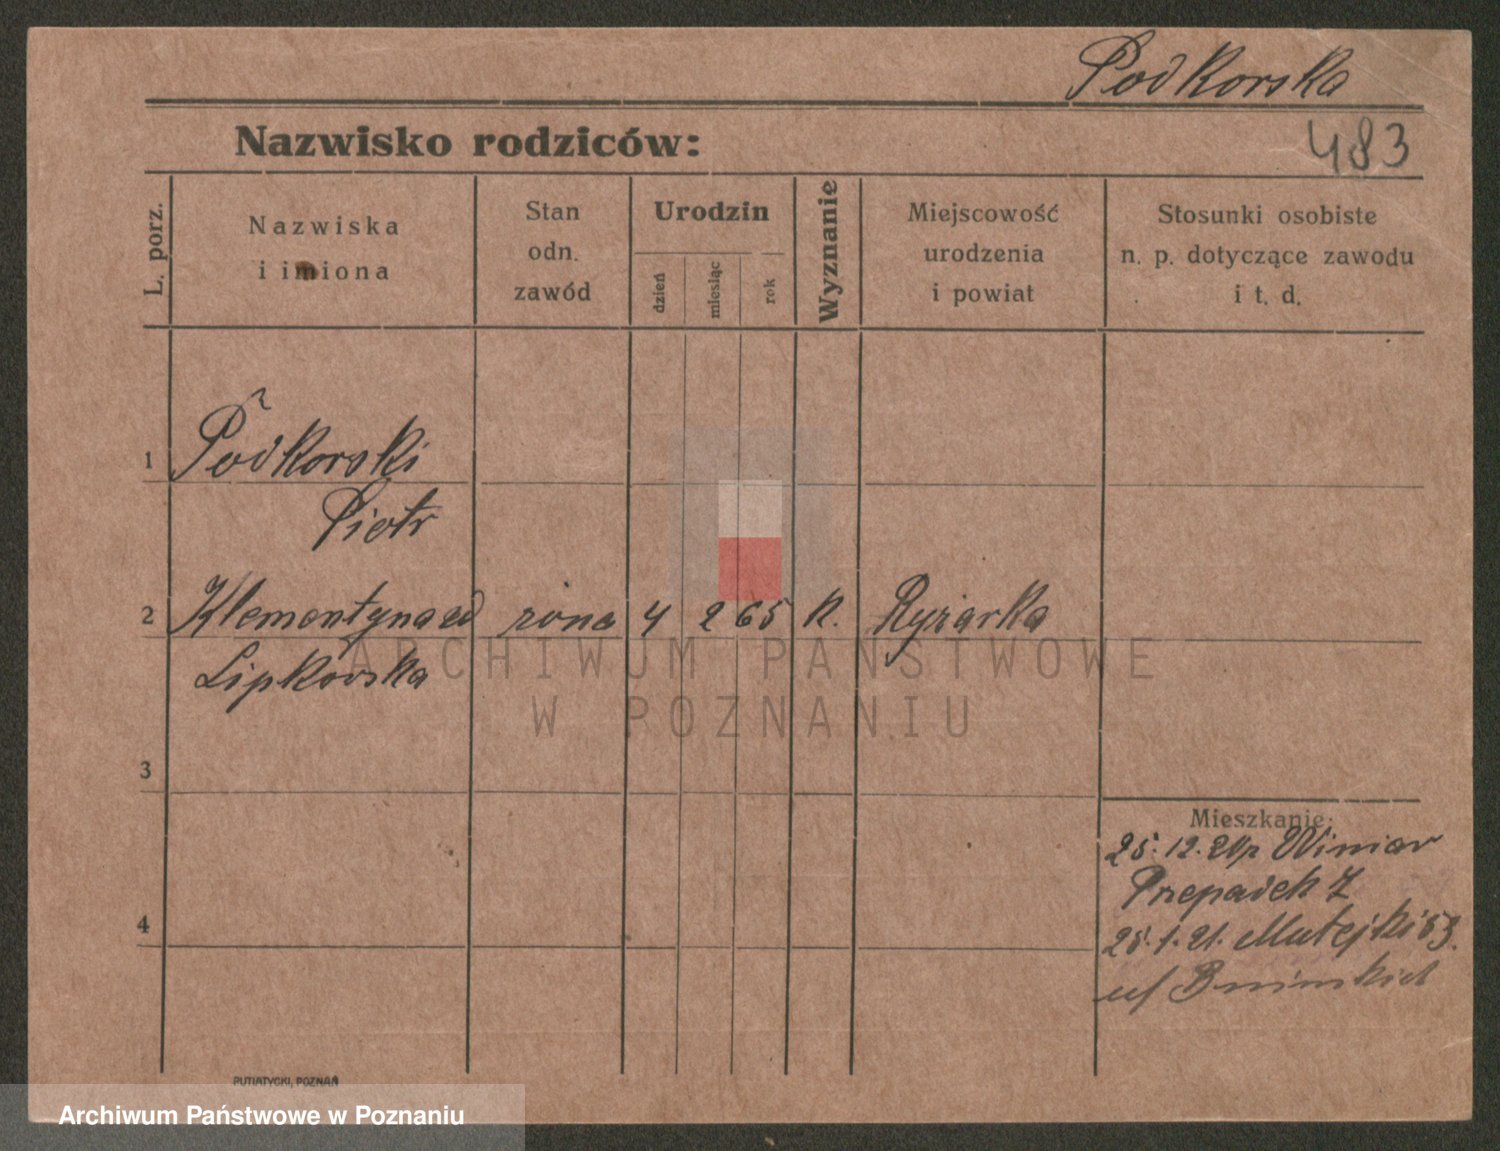 Podkorska
483
Nazwisko rodziców:
L. porz.
Nazwiska
i imiona
Stan
odn.
zawód
Urodzin
dzień
miesiąc
rok
Wyznanie
Miejscowość
urodzenia
i powiat
Stosunki osobiste
n. p. dotyczące zawodu
i t. d.
1 Podkorski
Piotr
2 Klementyna zd żona 4 2 65 k. Ryżarka
Lipkowska
3
Mieszkanie:
25. 12. Winiar
Przepadek 7
4
25. 1. 21. Matejki 53.
PUTIATYCKI, POZNAŃ
ARCHIWUM PAŃSTWOWE
W POZNANIU
Archiwum Państwowe w Poznaniu